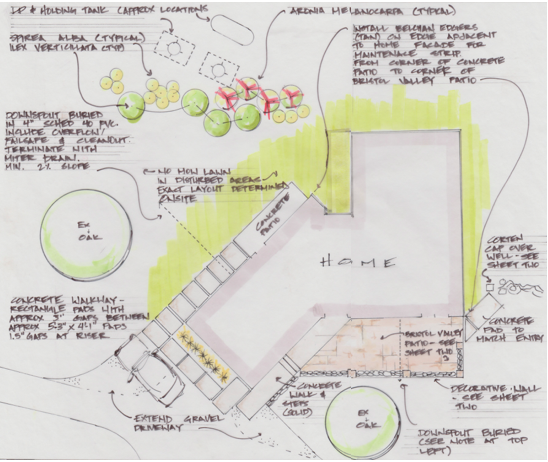 LP & HOLDING TANK (APPROX LOCATIONS)
SPIREA ALBA (TYPICAL)
ILEX VERTICILLATA (TYP)
ARONIA MELANOCARPA (TYPICAL)
INSTALL BELGIAN EDGERS
(TAN) ON EDGE ADJACENT
TO HOME FACADE FOR
MAINTENACE STRIP
FROM CORNER OF CONCRETE
PATIO TO CORNER OF
BRISTOL VALLEY PATIO
DOWNSPOUT BURIED
IN 4" SCHED 40 PVC.
INCLUDE OVERFLOW/
FAILSAFE & CLEANOUT.
TERMINATE WITH
MITER DRAIN.
MIN. 2% SLOPE
NO MOW LAWN
IN DISTURBED AREAS
EXACT LAYOUT DETERMINED
ONSITE
EX
OAK
CONCRETE
PATIO
HOME
CORTEN
CAP OVER
WELL - SEE
SHEET TWO
CONCRETE WALKWAY -
RECTANGLE PADS WITH
APPROX 3" GAPS BETWEEN
APPROX 5'3" X 4'-1" PADS
1.5" GAPS AT RISER
CONCRETE
PAD TO
MATCH ENTRY
BRISTOL VALLEY
PATIO - SEE
SHEET TWO
CONCRETE
WALK &
STEPS
(SOLID)
DECORATIVE WALL
- SEE SHEET
TWO
EXTEND GRAVEL
DRIVEWAY
EX
OAK
DOWNSPOUT BURIED
(SEE NOTE AT TOP
LEFT)